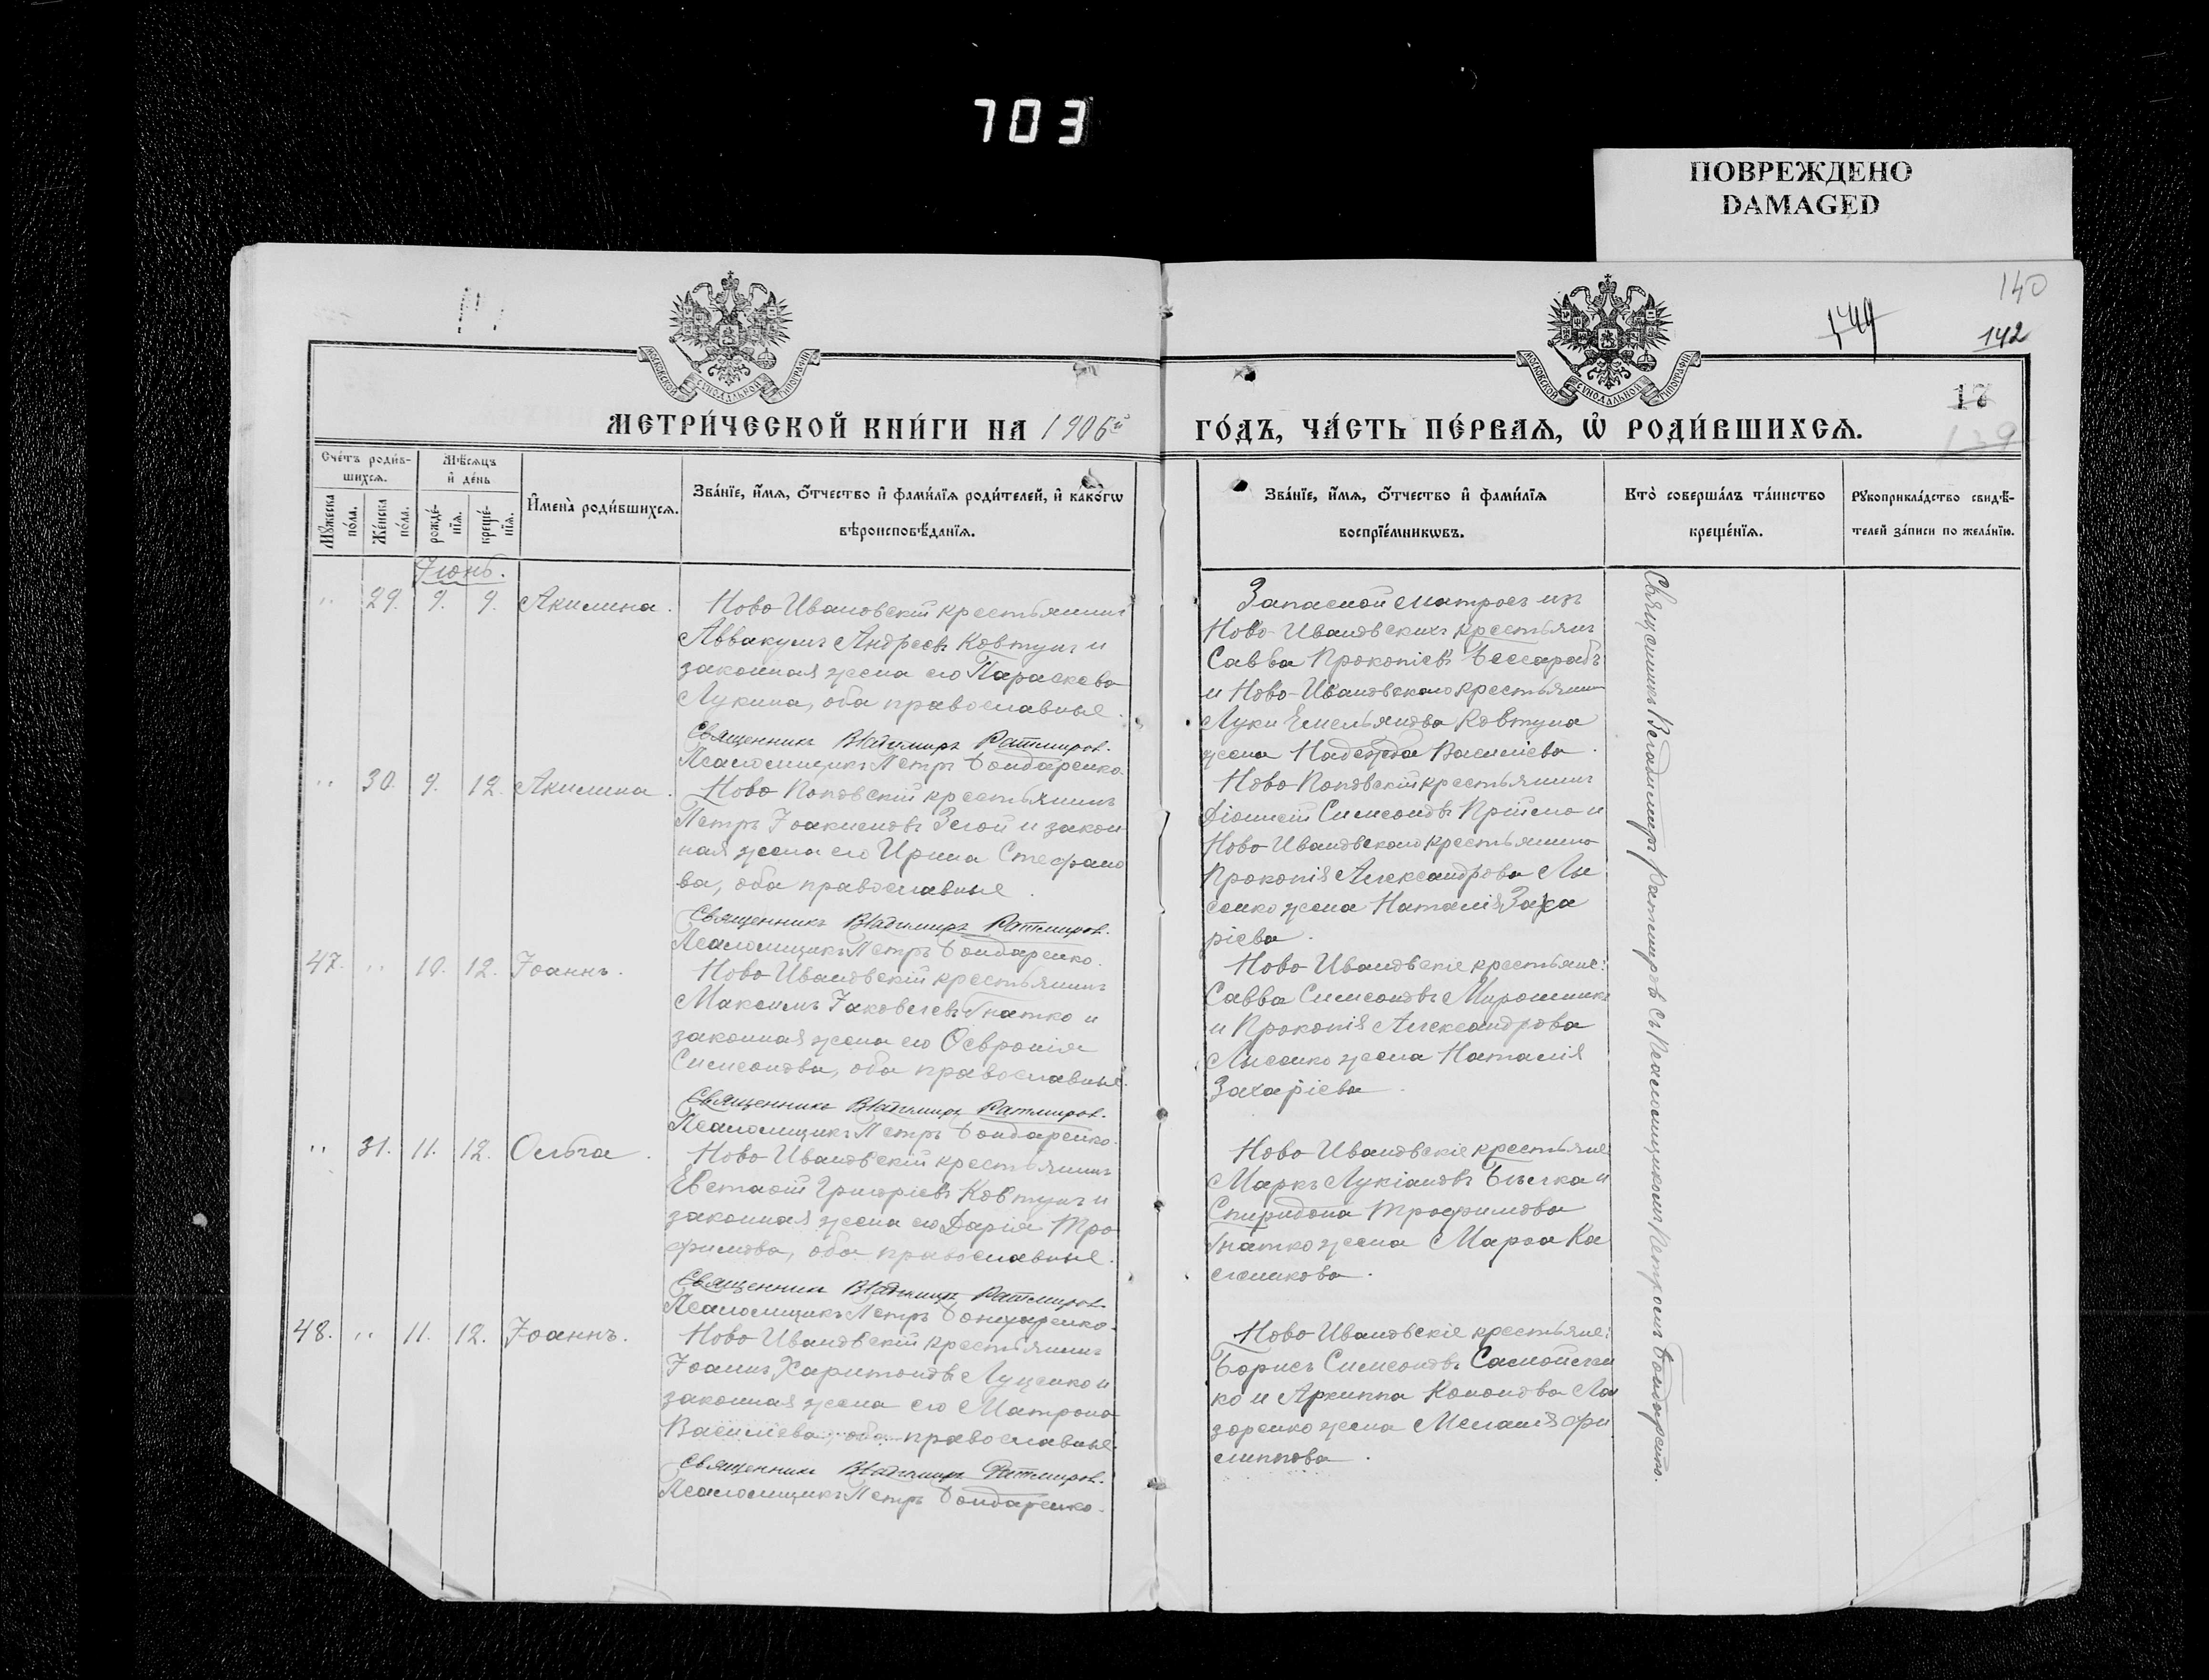 703
ПОВРЕЖДЕНО
DAMAGED
140
144
142
17
139
МОСКОВСКОЙ СѴНОДАЛЬНОЙ ТИПОГРАФІИ
МОСКОВСКОЙ СѴНОДАЛЬНОЙ ТИПОГРАФІИ
МЕТРИ́ЧЕСКОЙ КНИ́ГИ НА 1906й
ГО́ДЪ, ЧА́СТЬ ПЕ́РВАѦ, Ѡ҆ РОДИ́ВШИХСѦ.
Сче́тъ роди́в-
шихсѧ.
Мꙋ́жеска
по́ла.
Же́нска
по́ла.
Мѣ́сѧцъ
и҆ де́нь
рожде́-
нїѧ.
креще́-
нїѧ.
И҆мена̀ роди́вшихсѧ.
Зва́нїе, и҆́мѧ, ѻ҆́тчество и҆ фами́лїѧ роди́телей, и҆ како́гѡ
вѣроисповѣ́данїѧ.
Зва́нїе, и҆́мѧ, ѻ҆́тчество и҆ фами́лїѧ
воспрїе́мникѡвъ.
Кто̀ соверша́лъ та́инство
креще́нїѧ.
Рꙋкоприкла́дство свидѣ́-
телей за́писи по жела́нїю.
Іюнь.
" 29. 9. 9. Акилина.
Ново Ивановскій крестьянинъ
Аввакумъ Андреевъ Ковтунъ и
законная жена его Параскева
Лукина, оба православные.
Священникъ Владимиръ Ратмировъ.
Псаломщикъ Петръ Бондаренко.
Запасной матросъ изъ
Ново-Ивановскихъ крестьянъ
Савва Прокопіевъ Бессарабъ
и Ново-Ивановскаго крестьянина
Луки Емельянова Ковтуна
жена Надежда Василіева.
" 30. 9. 12. Акилина.
Ново Поповскій крестьянинъ
Петръ Іоакимовъ Злой и закон
ная жена его Ирина Стефано
ва, оба православные.
Священникъ Владимиръ Ратмировъ.
Псаломщикъ Петръ Бондаренко.
Ново Поповскій крестьянинъ
Діонисій Симеоновъ Пріймо и
Ново Ивановскаго крестьянина
Прокопія Александрова Лы
сенко жена Наталія Заха
ріева.
47. " 10. 12. Іоаннъ.
Ново Ивановскій крестьянинъ
Максимъ Іаковлевъ Гнатко и
законная жена его Ѳевронія
Симеонова, оба православные.
Священникъ Владимиръ Ратмировъ.
Псаломщикъ Петръ Бондаренко.
Ново Ивановскіе крестьяне:
Савва Симеоновъ Мирошникъ
и Прокопія Александрова
Лысенко жена Наталія
Захаріева.
" 31. 11. 12. Ольга.
Ново Ивановскій крестьянинъ
Евстаѳій Григоріевъ Ковтунъ и
законная жена его Дарія Тро
фимова, оба православные.
Священникъ Владимиръ Ратмировъ.
Псаломщикъ Петръ Бондаренко.
Ново Ивановскіе крестьяне
Маркъ Лукіановъ Бѣлка и
Спиридона Трофимова
Гнатко жена Марѳа Ка
лѣникова.
48. " 11. 12. Іоаннъ.
Ново Ивановскій крестьянинъ
Іоаннъ Харитоновъ Луценко и
законная жена его Матрона
Василіева, оба православные.
Священникъ Владимиръ Ратмировъ.
Псаломщикъ Петръ Бондаренко.
Ново Ивановскіе крестьяне:
Борисъ Симеоновъ Самойлен
ко и Архиппа Кононова Ла
заренко жена Меланія Фи
липпова.
Священникъ Владимиръ Ратмировъ съ Псаломщикомъ Петромъ Бондаренко.